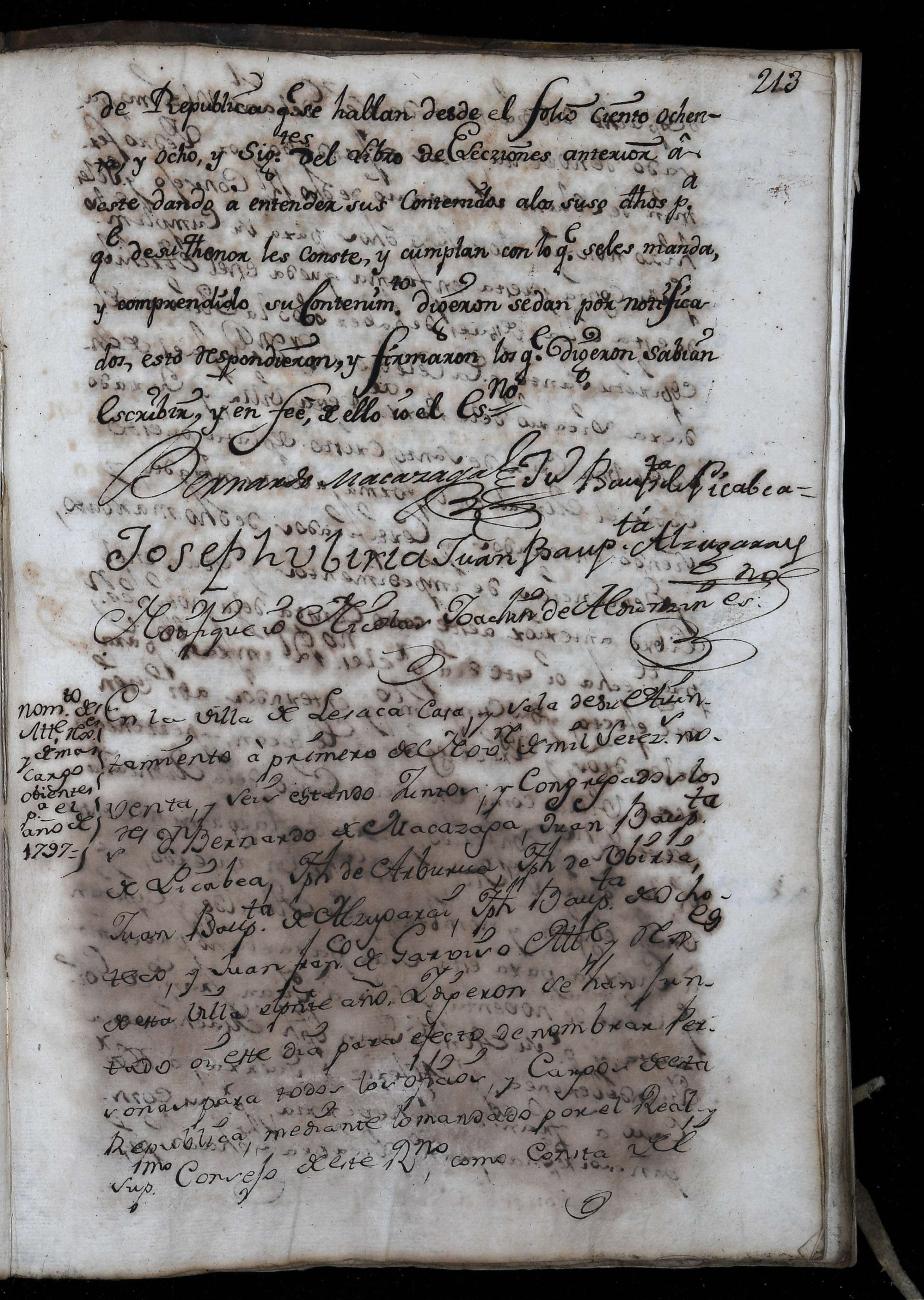 213
de Republica q.e se hallan desde el folio ciento ochen-
ta, y ocho, y Sig.tes del Libro de Elecziones anterior â
este dando a entender sus Contenidos a los suso dhos p.a
q.e de su Thenor les Conste, y cumplan con lo q.e se les manda,
y comprendido su Contenim.to digeron se dan por notifica
dos, esto respondieron, y firmaron los q.e digeron sabian
Escribir, y en fee, de ello io el Es.no
Bernardo Macazaga Ju Baup.ta de Picabea=
Joseph Ubiria Juán Baup.ta Alzugaray
Notifique io Nicolas Joachin de Alduncin es.no
nom.to de
Att.e R.es
y demas
Cargo
obientes
p.a el
año de
1797-
En la Villa de Lesaca Casa, y Sala de su Aiun-
tamiento à primero de Nov.re de mil Setez.s no-
venta, y seis estando Juntos, y Congregados los
S.res D.n Bernardo de Macazaga, Juan Baup.ta
de Picabea, Jph de Arburua, Jph de Vbiria,
Juan Baup.ta de Alzugarai, Jph Baup.ta de Ocho-
teco, y Juan Fran.co de Garviso Att.e y R.es
de esta Villa el pñte año. Digeron se han Jun-
tado oi este dia para efecto de nombrar Per-
sonas para todos los oficios, y Cargos de esta
Republica, mediante lo mandado por el Real y
Sup.mo Consejo de este R.no, como Consta del